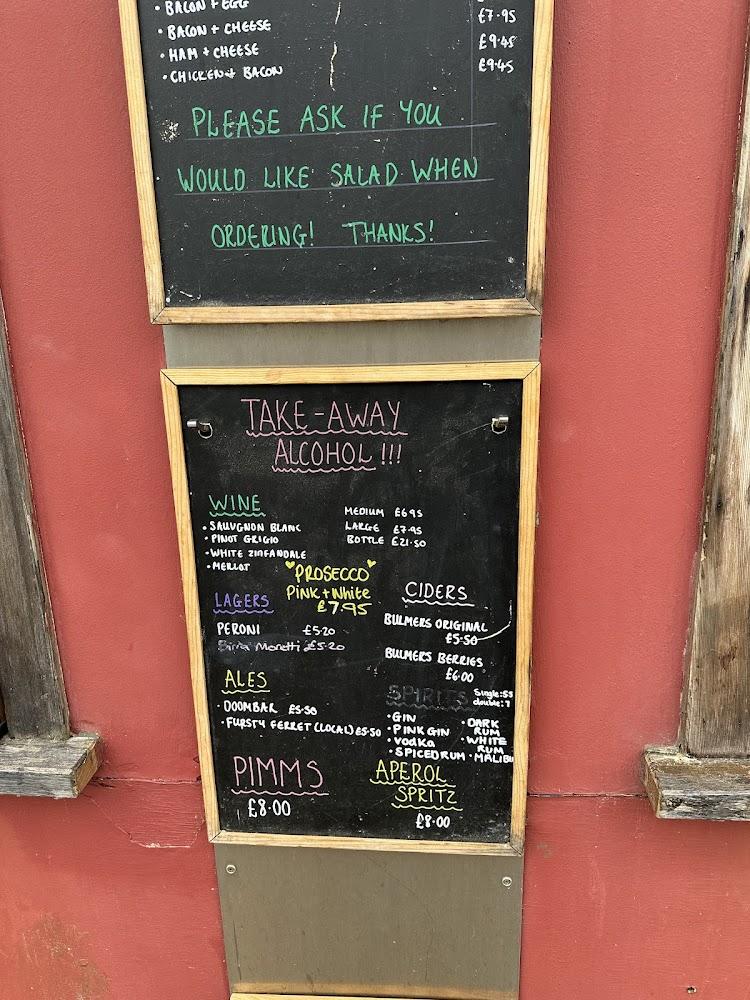 • BACON + EGG
• BACON + CHEESE £7.95
• HAM + CHEESE £9.45
• CHICKEN + BACON £9.45
PLEASE ASK IF YOU
WOULD LIKE SALAD WHEN
ORDERING! THANKS!
TAKE-AWAY
ALCOHOL!!!
WINE
• SAUVGNON BLANC
• PINOT GRIGIO
• WHITE ZINFANDALE
• MERLOT
MEDIUM £6.95
LARGE £7.95
BOTTLE £21.50
PROSECCO
PINK + White
£7.95
LAGERS
PERONI £5.20
Birra Moretti £5.20
CIDERS
BULMERS ORIGINAL
£5.50
BULMERS BERRIES
£6.00
ALES
• DOOMBAR £5.50
• FURSTY FERRET (LOCAL) £5.50
SPIRITS
Single:
double: 7
• GIN
• PINK GIN
• Vodka
• SPICED RUM
• DARK
RUM
• WHITE
RUM
• MALIBU
PIMMS
£8.00
APEROL
SPRITZ
£8.00